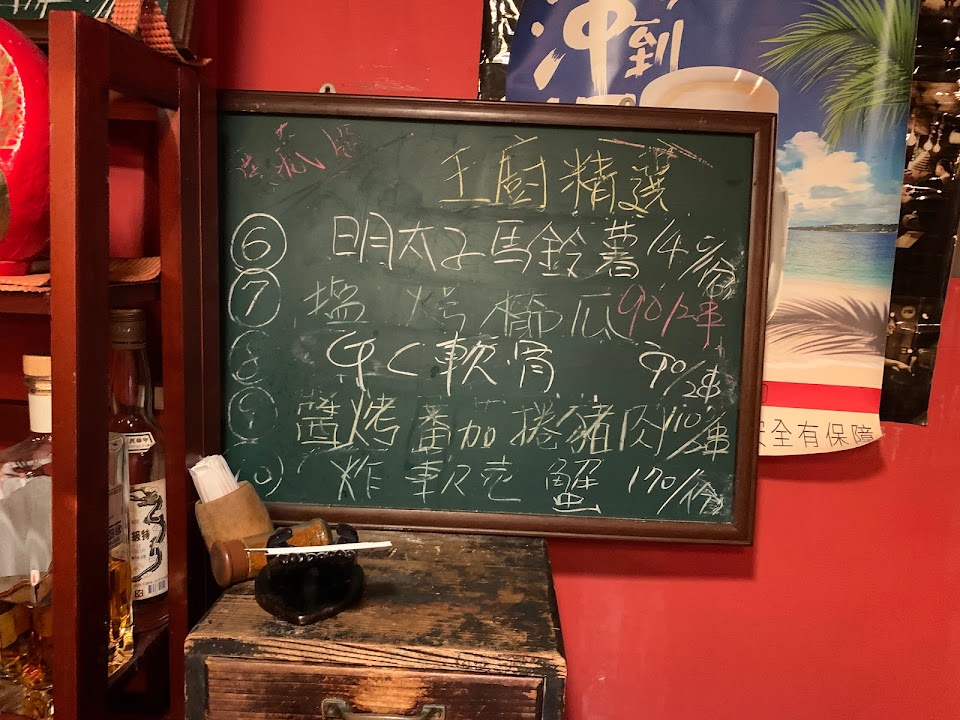 沖到
王廚精選
⑥ 明太子馬鈴薯 140/份
⑦ 塩烤櫛瓜 90/2串
⑧ 軟骨 90/2串
⑨ 醬烤番茄捲豬肉 110/串
⑩ 炸軟壳蟹 170/份
安全有保障
級特